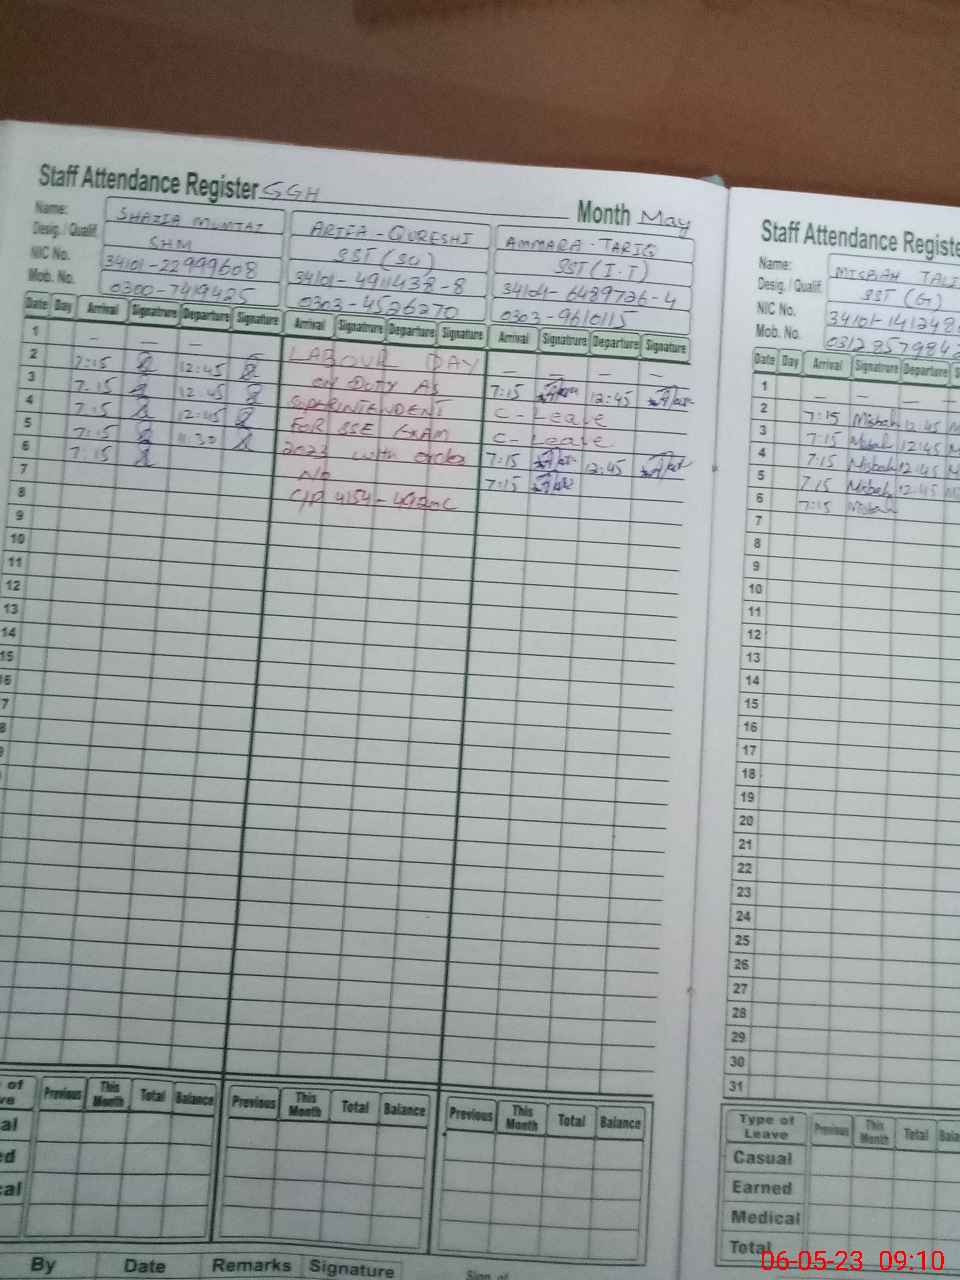 Staff Attendance Register SGH
Month May
Name: SHAZIA MUMTAZ ARIFA - QURESHI AMMARA - TARIQ
Desig. / Qualif. SHM SST (SC) SST (I.T)
NIC No. 34101-22999608 34101-4911438-8 34101-6489726-4
Mob. No. 0300-7419425 0303-4526270 0303-9610115
Date Day Arrival Signatrure Departure Signature Arrival Signatrure Departure Signature Arrival Signatrure Departure Signature
1 — — — — LABOUR DAY — — — —
2 7:15 12:45 ON DUTY AS 7:15 12:45
3 7:15 12:45 SUPERINTENDENT C-Leave
4 7:15 12:45 FOR SSE EXAM C-Leave
5 7:15 11:30 2023 with order 7:15 12:45
6 7:15 N/o 7:15
7 C/P 4154-
8
9
10
11
12
13
14
15
16
7
8
9
Previous This Month Total Balance Previous This Month Total Balance Previous This Month Total Balance
By Date Remarks Signature
Sign of
Staff Attendance Registe
Name: MISBAH
Desig. / Qualif. SST (G)
NIC No. 34101-141248
Mob. No. 03128579842
Date Day Arrival Signatrure Departure S
1 — — —
2 7:15 Misbah 12:45
3 7:15 Misbah 12:45
4 7:15 Misbah 12:45
5 7:15 Misbah 12:45
6 7:15 Misbah
7
8
9
10
11
12
13
14
15
16
17
18
19
20
21
22
23
24
25
26
27
28
29
30
31
Type of Leave Previous This Month Total Bala
Casual
Earned
Medical
Total
06-05-23 09:10